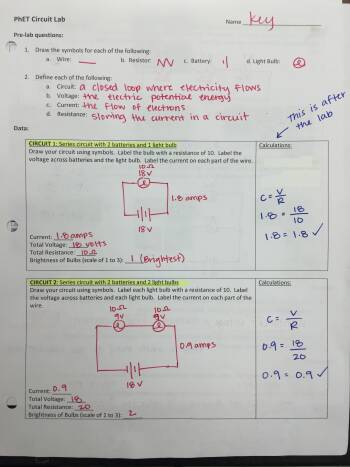 PhET Circuit Lab
Name Key
Pre-lab questions:
1. Draw the symbols for each of the following:
a. Wire: b. Resistor: c. Battery: d. Light Bulb:
2. Define each of the following:
a. Circuit: a closed loop where electricity flows
b. Voltage: the electric potential energy
c. Current: the flow of electrons
d. Resistance: slowing the current in a circuit
This is after the lab
Data:
CIRCUIT 1: Series circuit with 2 batteries and 1 light bulb
Draw your circuit using symbols. Label the bulb with a resistance of 10. Label the
voltage across batteries and the light bulb. Label the current on each part of the wire.
10Ω
18V
1.8 amps
18V
Current: 1.8 amps
Total Voltage: 18 volts
Total Resistance: 10Ω
Brightness of Bulbs (scale of 1 to 3): 1 (Brightest)
Calculations:
C = V/R
1.8 = 18/10
1.8 = 1.8 ✓
CIRCUIT 2: Series circuit with 2 batteries and 2 light bulbs
Draw your circuit using symbols. Label each light bulb with a resistance of 10. Label
the voltage across batteries and each light bulb. Label the current on each part of the
wire.
10Ω 10Ω
9V 9V
0.9 amps
18V
Current: 0.9
Total Voltage: 18
Total Resistance: 20
Brightness of Bulbs (scale of 1 to 3): 2
Calculations:
C = V/R
0.9 = 18/20
0.9 = 0.9 ✓